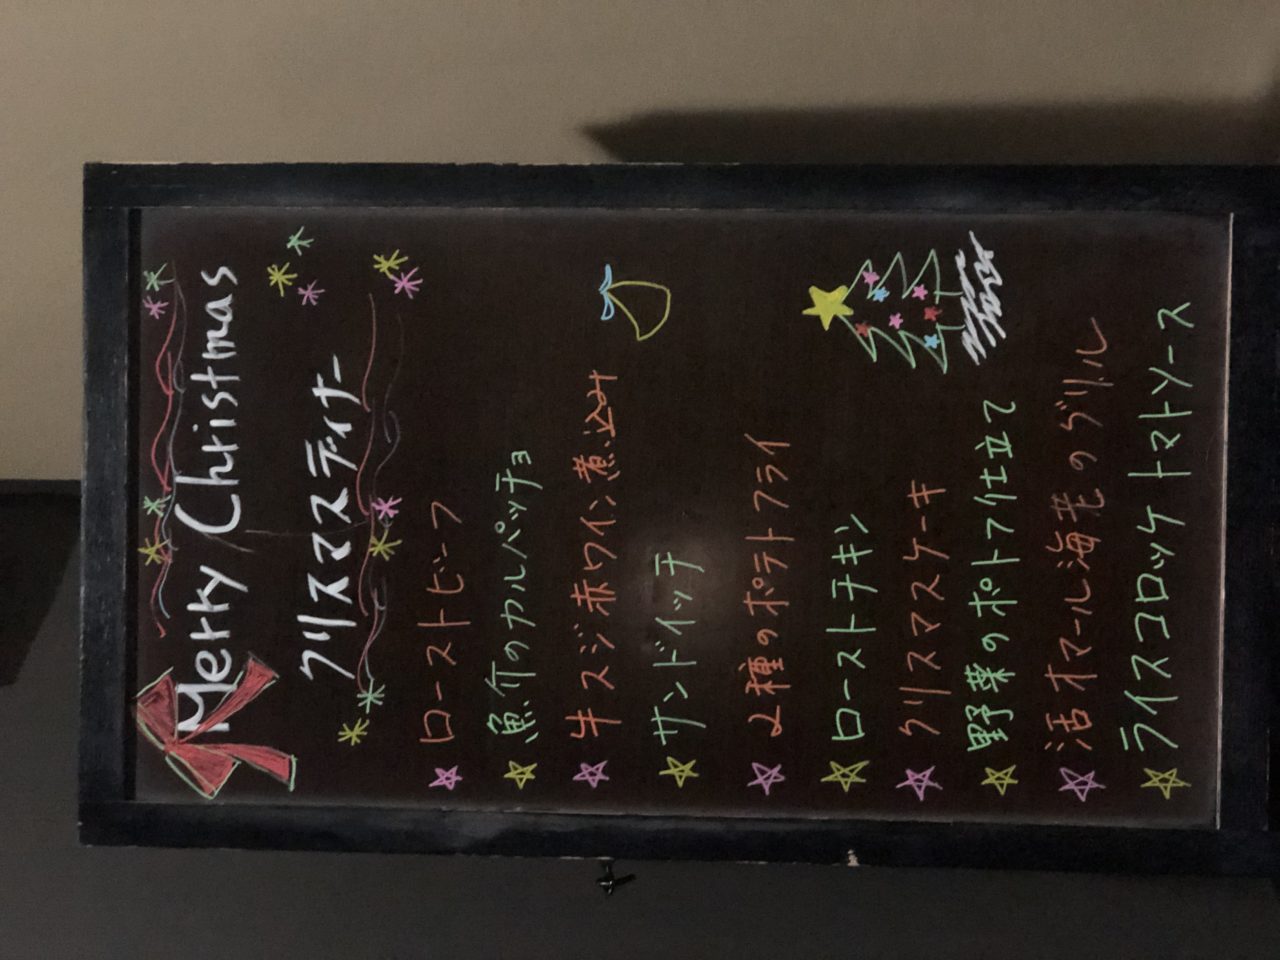 Merry Christmas
クリスマスディナー
ローストビーフ
魚介のカルパッチョ
牛スジ赤ワイン煮込み
サンドイッチ
2種のポテトフライ
ローストチキン
クリスマスケーキ
野菜のポトフ仕立て
活オマール海老のグリル
ライスコロッケ トマトソース